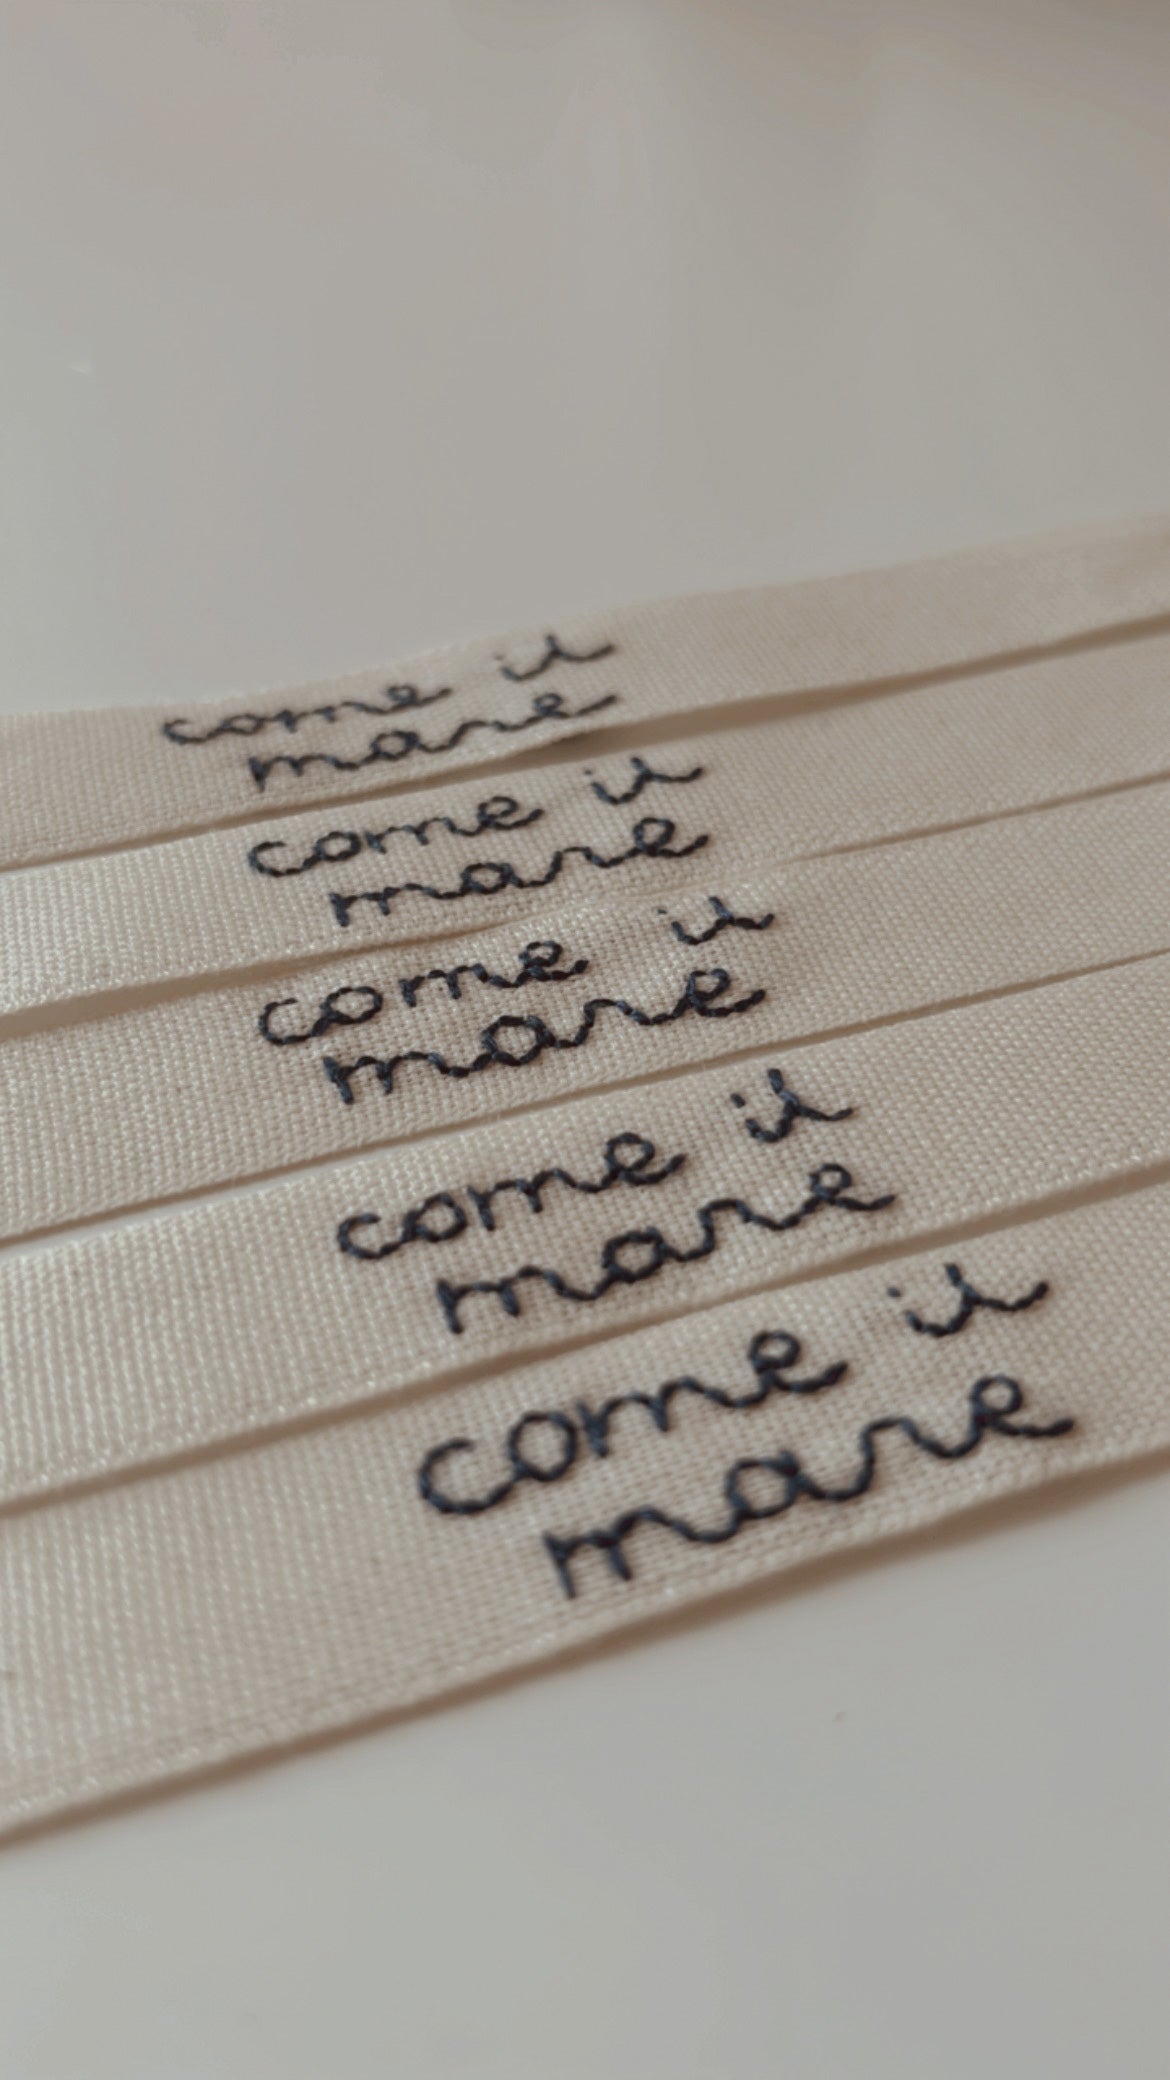 come il
mare
come il
mare
come il
mare
come il
mare
come il
mare